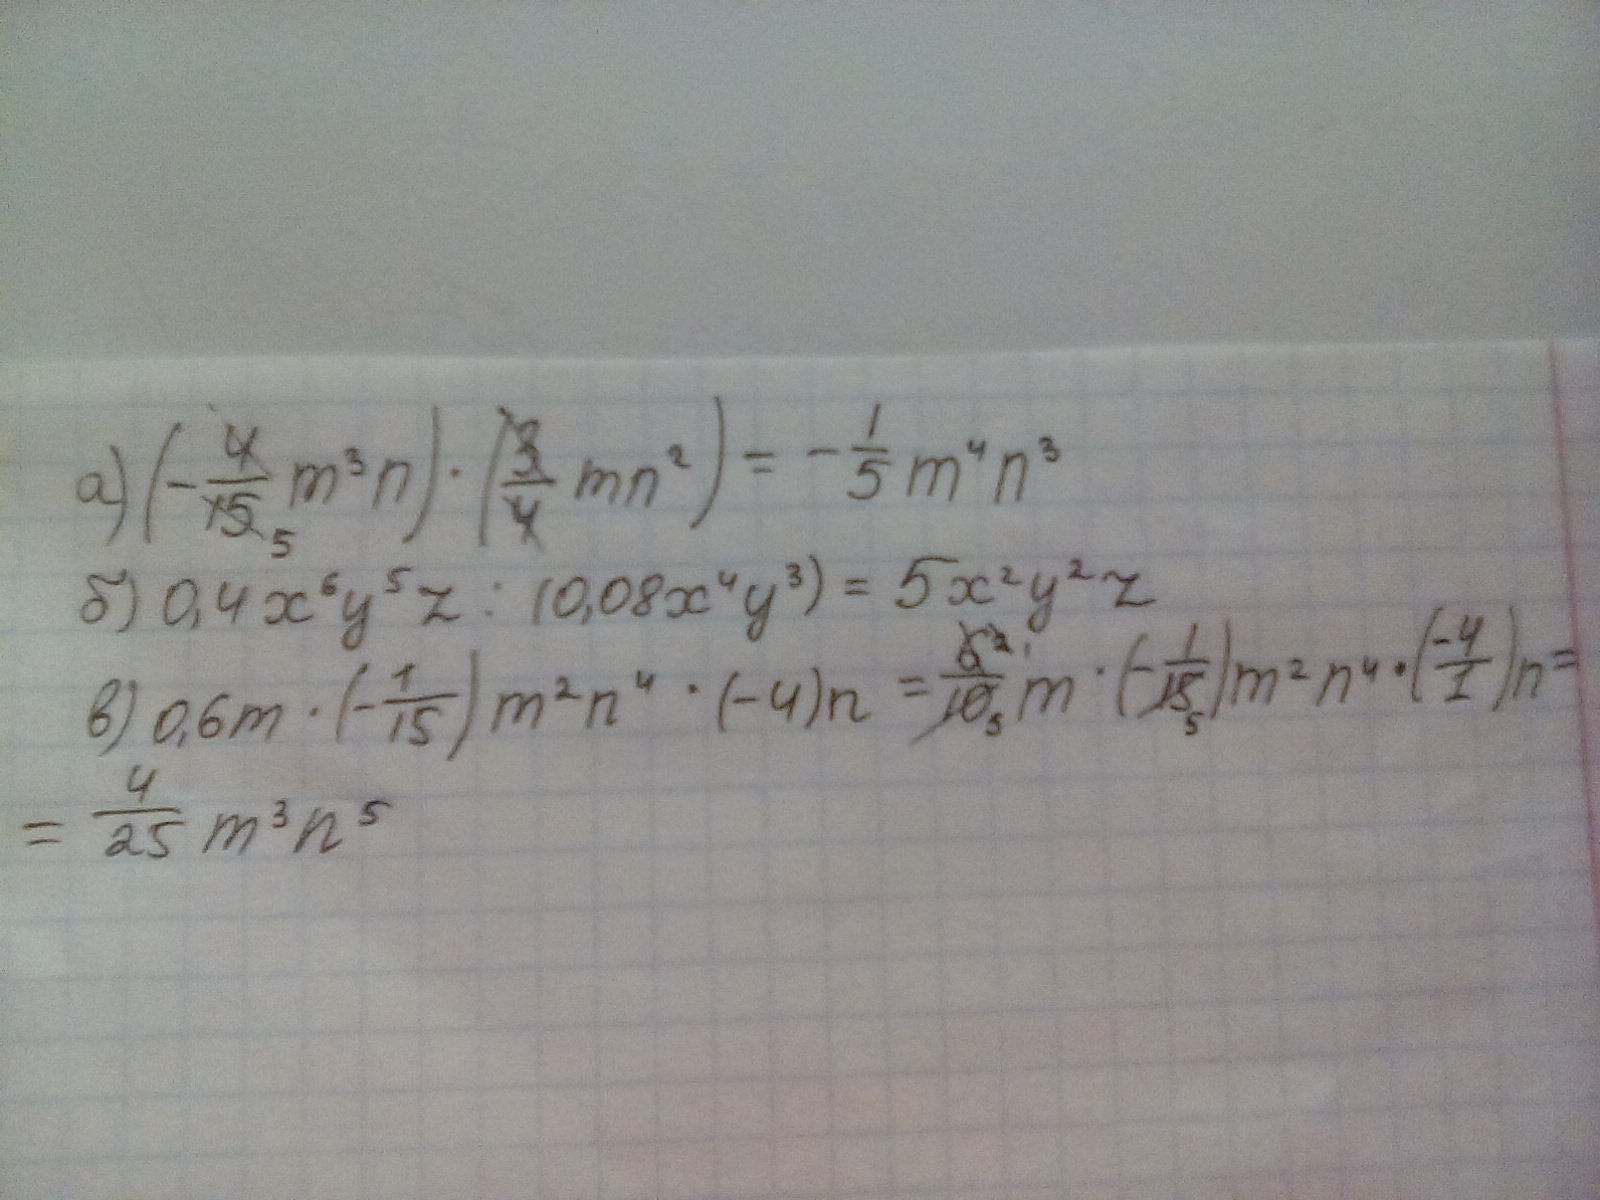 а) (-4/15 5 m³n) · (3/4 mn²) = -1/5 m⁴n³
б) 0,4x⁶y⁵z : (0,08x⁴y³) = 5x²y²z
в) 0,6m · (-1/15) m²n⁴ · (-4)n = 6/10 5 m · (-1/15 5) m²n⁴ · (-4/1)n =
= 4/25 m³n⁵